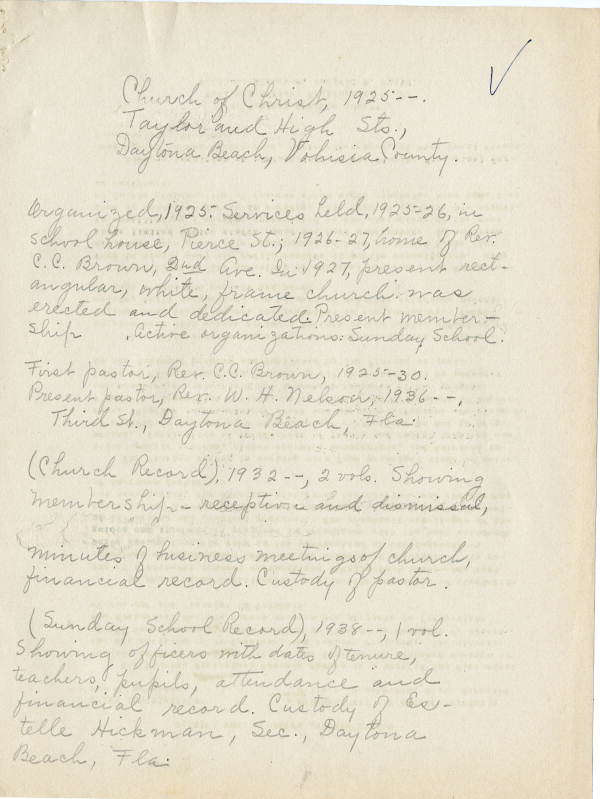 Church of Christ, 1925--.
Taylor and High Sts.,
Daytona Beach, Volusia County.
Organized, 1925. Services held, 1925-26, in
school house, Pierce St.; 1926-27, home of Rev.
C.C. Brown, 2nd Ave. In 1927, present rect-
angular, white, frame church was
erected and dedicated. Present member-
ship . Active organizations: Sunday School.
First pastor, Rev. C.C. Brown, 1925-30.
Present pastor, Rev. W. H. Nelson, 1936--,
Third St., Daytona Beach, Fla.
(Church Record), 1932--, 2 vols. Showing
membership - reception and dismissal,
minutes of business meetings of church,
financial record. Custody of pastor.
(Sunday School Record), 1938--, 1 vol.
Showing officers with dates of tenure,
teachers, pupils, attendance and
financial record. Custody of Es-
telle Hickman, Sec., Daytona
Beach, Fla.